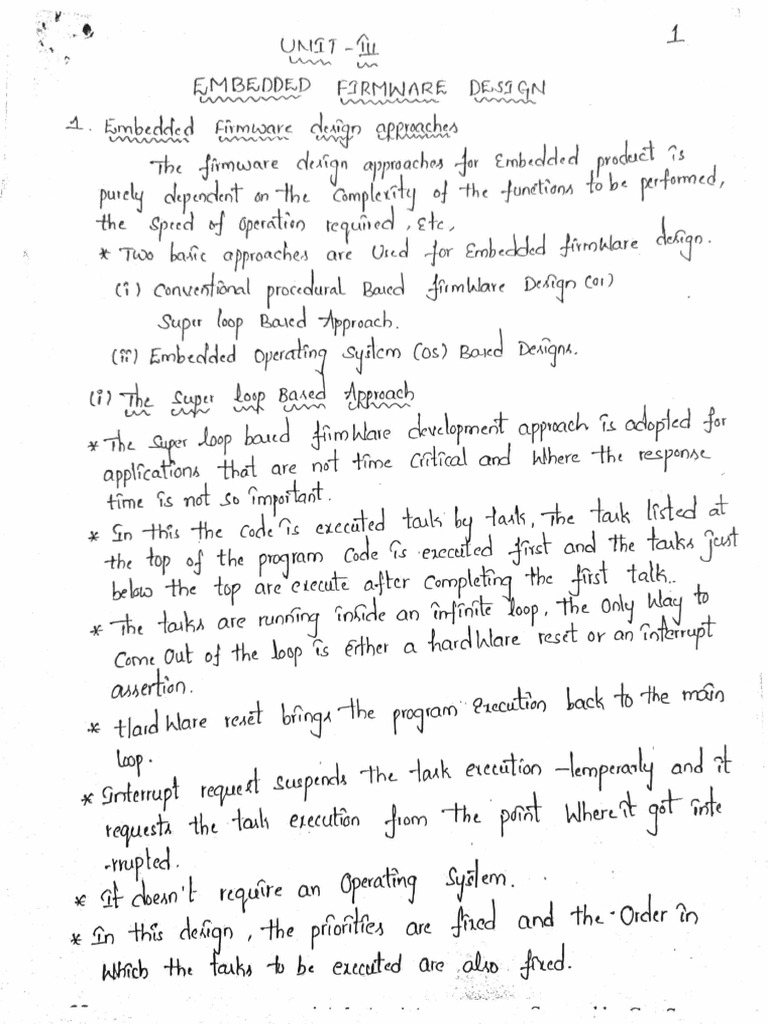 1
UNIT - III
EMBEDDED FIRMWARE DESIGN
1. Embedded Firmware design approaches
The firmware design approaches for Embedded product is
purely dependent on the Complexity of the functions to be performed,
the speed of operation required, Etc,
* Two basic approaches are Used for Embedded firmware design.
(i) Conventional procedural Based firmware Design (or)
Super loop Based Approach.
(ii) Embedded Operating System (OS) Based Designs.
(i) The Super loop Based Approach
* The super loop based firmware development approach is adopted for
applications that are not time critical and where the response
time is not so important.
* In this the code is executed task by task, The task listed at
the top of the program code is executed first and the tasks just
below the top are execute after completing the first talk..
* The tasks are running inside an infinite loop, the only way to
Come Out of the loop is either a hardware reset or an interrupt
assertion.
* Hardware reset brings the program execution back to the main
loop.
* Interrupt request suspends the task execution temperasly and it
requests the task execution from the point where it got inte
-rrupted.
* It doesn't require an Operating System.
* In this design, the priorities are fixed and the Order in
which the tasks to be executed are also fixed.